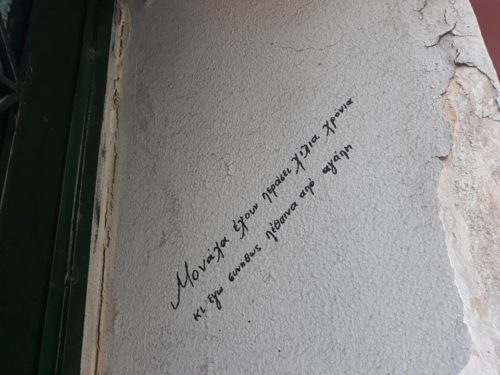 Μονάχα έχουν περάσει χίλια χρόνια
κι εγώ συνήθως πέθαινα από αγάπη